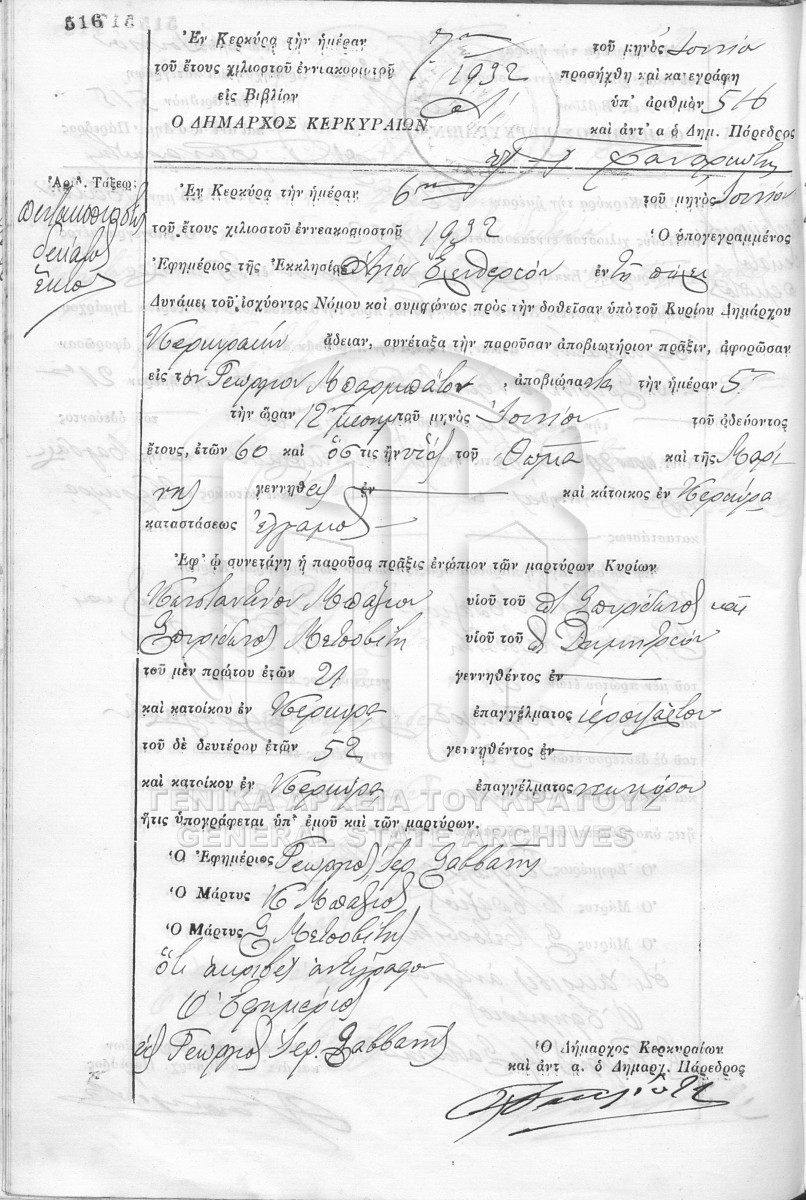 516
Ἐν Κερκύρᾳ τὴν ἡμέραν 7ην τοῦ μηνὸς Ἰουνίου
τοῦ ἔτους χιλιοστοῦ ἐννεακοσιοστοῦ 1932 προσήχθη καὶ κατεγράφη
εἰς Βιβλίον ὑπ' ἀριθμὸν 516
Ο ΔΗΜΑΡΧΟΣ ΚΕΡΚΥΡΑΙΩΝ καὶ ἀντ' α ὁ Δημ. Πάρεδρος
Ἀριθ. Τάξεως
πεντακοσιοστὸς
δέκατος
ἕκτος
Ἐν Κερκύρᾳ τὴν ἡμέραν 6ην τοῦ μηνὸς Ἰουνίου
τοῦ ἔτους χιλιοστοῦ ἐννεακοσιοστοῦ 1932 Ὁ ὑπογεγραμμένος
Ἐφημέριος τῆς Ἐκκλησίας Ἁγίου Ἐλευθερίου ἐν τῇ πόλει
Δυνάμει τοῦ ἰσχύοντος Νόμου καὶ συμφώνως πρὸς τὴν δοθεῖσαν ὑπὸ τοῦ Κυρίου Δημάρχου
Κερκυραίων ἄδειαν, συνέταξα τὴν παροῦσαν ἀποβιωτήριον πρᾶξιν, ἀφορῶσαν
εἰς τὸν Γεώργιον Μπαρμπάτον, ἀποβιώσαντα τὴν ἡμέραν 5ην
τὴν ὥραν 12 τοῦ μηνὸς Ἰουνίου τοῦ ὁδεύοντος
ἔτους, ἐτῶν 60 καὶ ὅστις ἦν υἱὸς τοῦ Θωμᾶ καὶ τῆς Μαρί
νης γεννηθεὶς ἐν καὶ κάτοικος ἐν Κερκύρᾳ
καταστάσεως ἔγγαμος
Ἐφ' ᾧ συνετάγη ἡ παροῦσα πρᾶξις ἐνώπιον τῶν μαρτύρων Κυρίων
Κωνσταντίνου Μπάζιου υἱοῦ τοῦ Σπυρίδωνος καὶ
Σπυρίδωνος Μετσοβίτη υἱοῦ τοῦ Δημητρίου
τοῦ μὲν πρώτου ἐτῶν 21 γεννηθέντος ἐν
καὶ κατοίκου ἐν Κερκύρᾳ ἐπαγγέλματος ἱεροψάλτου
τοῦ δὲ δευτέρου ἐτῶν 52 γεννηθέντος ἐν
καὶ κατοίκου ἐν Κερκύρᾳ ἐπαγγέλματος νεωκόρου
ΓΕΝΙΚΑ ΑΡΧΕΙΑ ΤΟΥ ΚΡΑΤΟΥΣ
ἥτις ὑπογράφεται ὑπ' ἐμοῦ καὶ τῶν μαρτύρων.
GENERAL STATE ARCHIVES
Ὁ Ἐφημέριος Γεώργιος Ἱερ. Σαββανης
Ὁ Μάρτυς Κ Μπάζιος
Ὁ Μάρτυς Σ Μετσοβίτης
Ὅτι ἀκριβὲς ἀντίγραφον
Ὁ Ἐφημέριος
Γεώργιος Ἱερ. Σαββανης
Ὁ Δήμαρχος Κερκυραίων
καὶ ἀντ α. ὁ Δημαρχ. Πάρεδρος